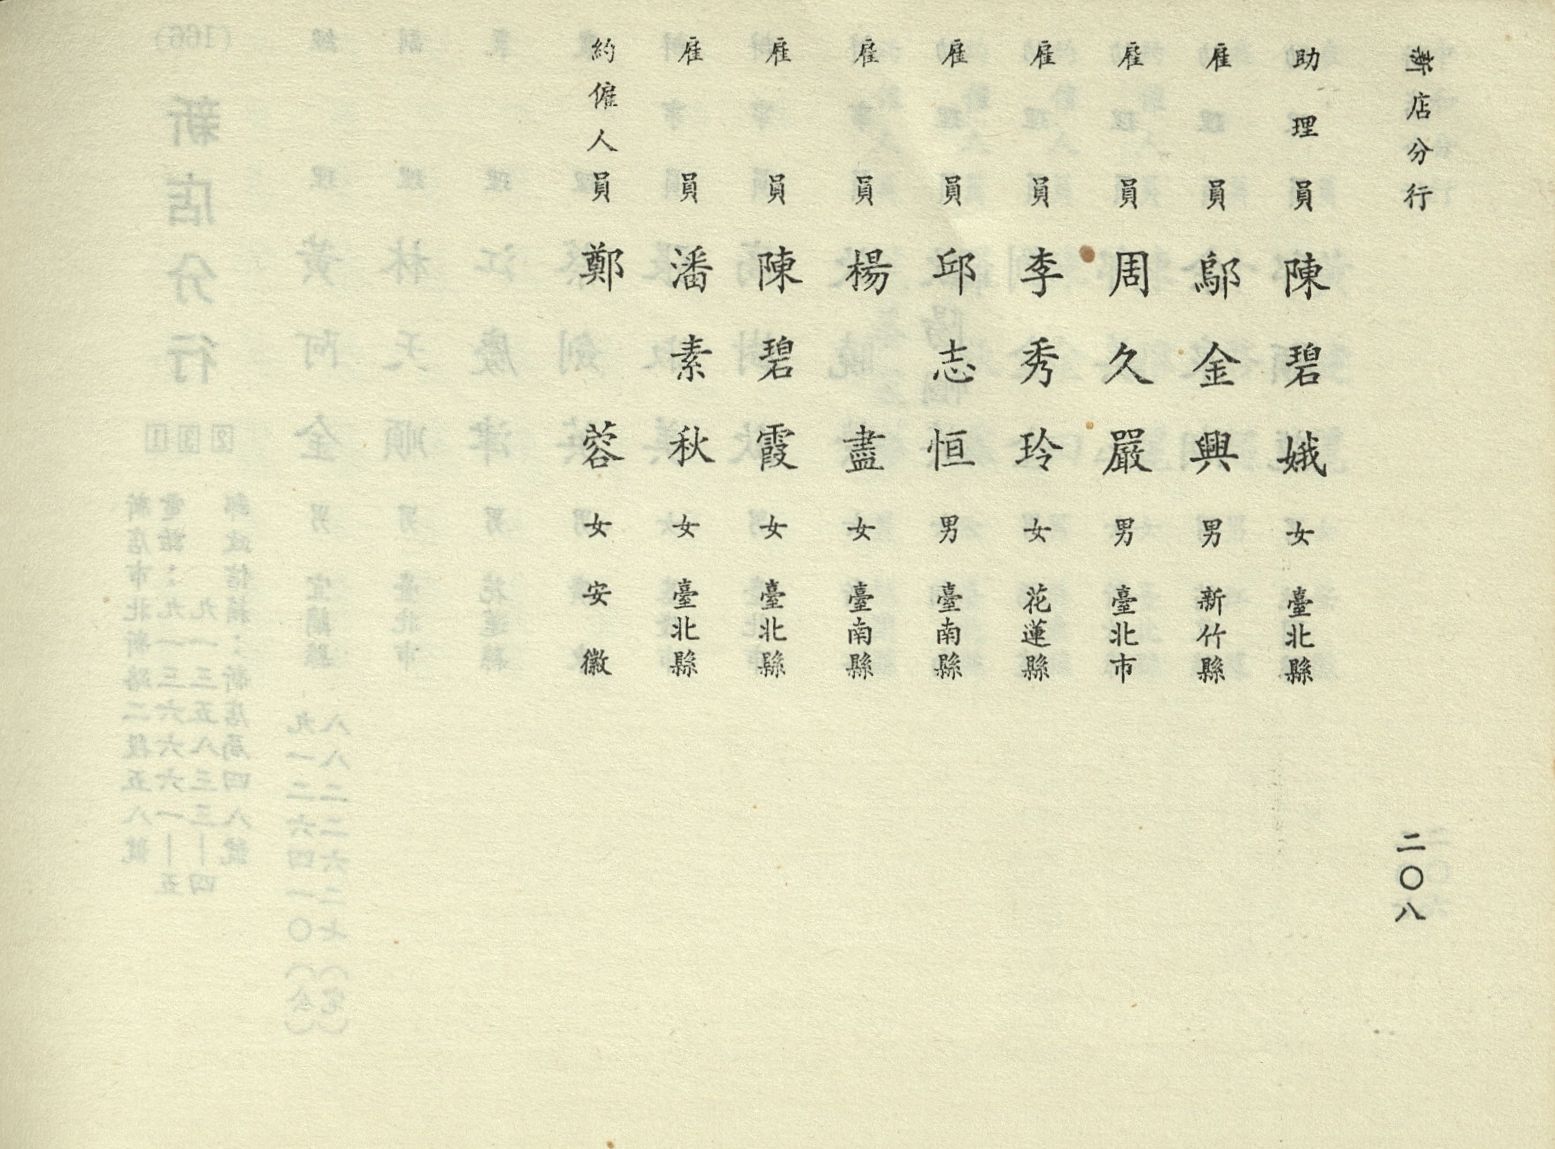 新店分行
助理員 陳碧娥 女 臺北縣
雇員 鄔金興 男 新竹縣
雇員 周久嚴 男 臺北市
雇員 李秀玲 女 花蓮縣
雇員 邱志恒 男 臺南縣
雇員 楊盡 女 臺南縣
雇員 陳碧霞 女 臺北縣
雇員 潘素秋 女 臺北縣
約僱人員 鄭蓉 女 安徽
二〇八